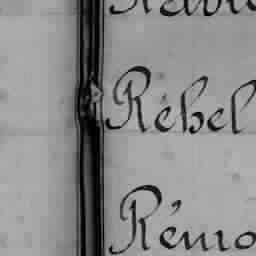 Rébel
Rémo